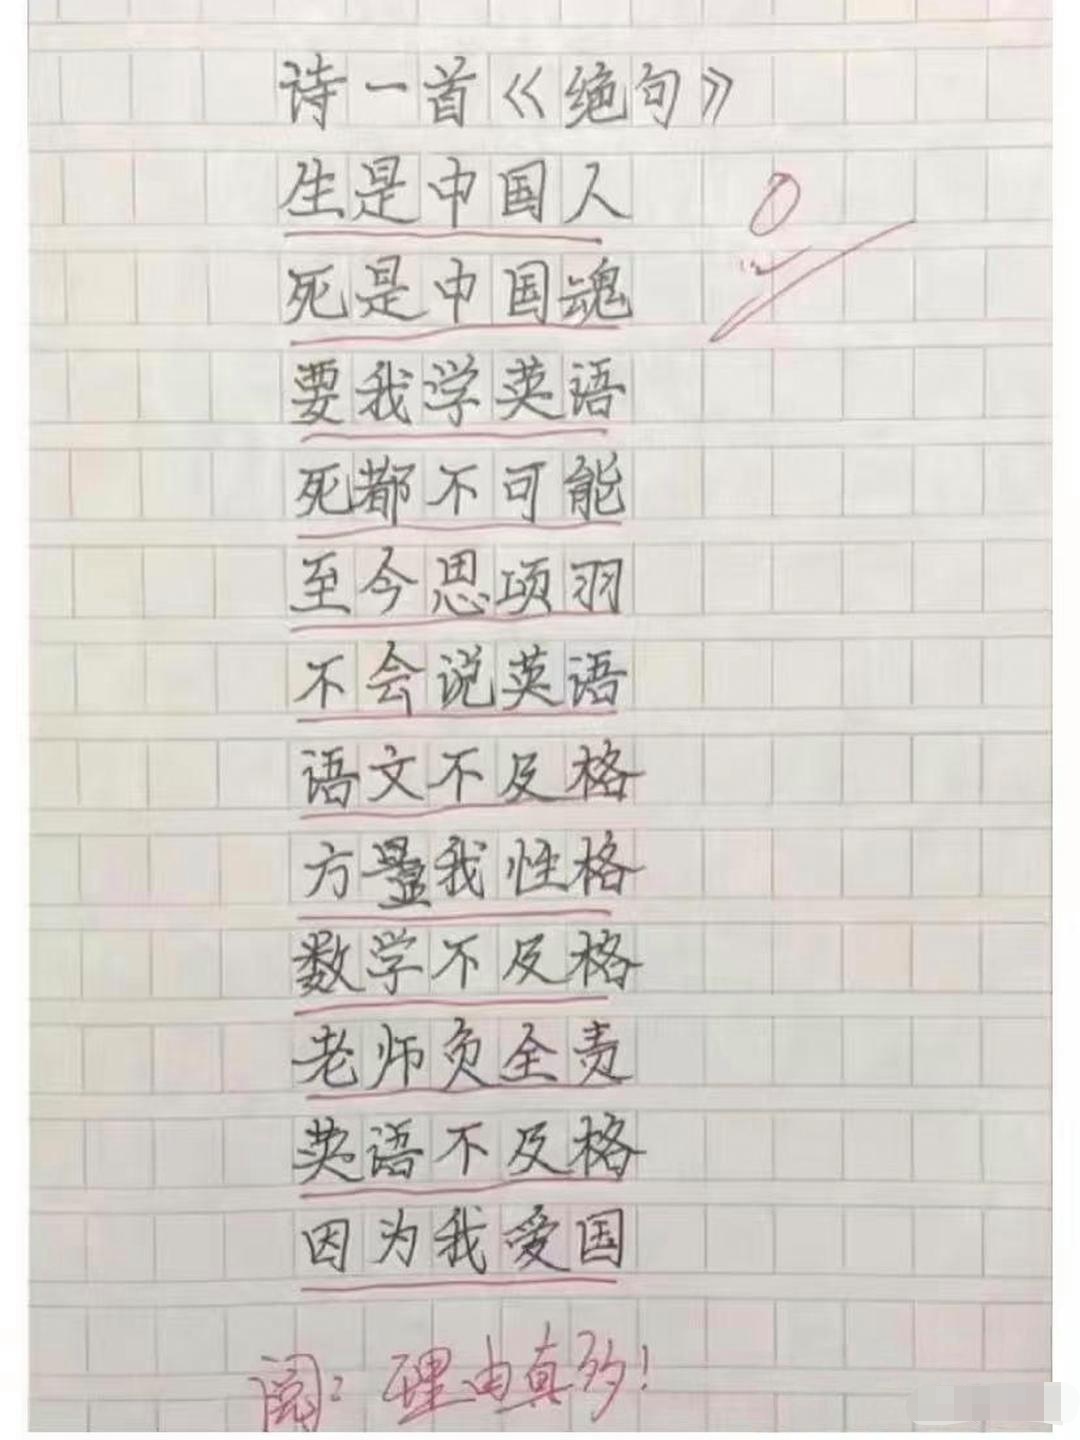 诗一首《绝句》
生是中国人
死是中国魂
要我学英语
死都不可能
至今思项羽
不会说英语
语文不及格
方显我性格
数学不及格
老师负全责
英语不及格
因为我爱国
0
阅:理由真多!